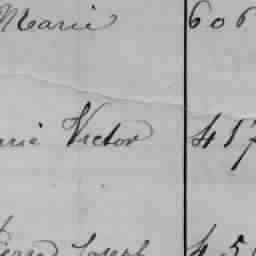 Marie 606
arie Victor 417
Joseph 45